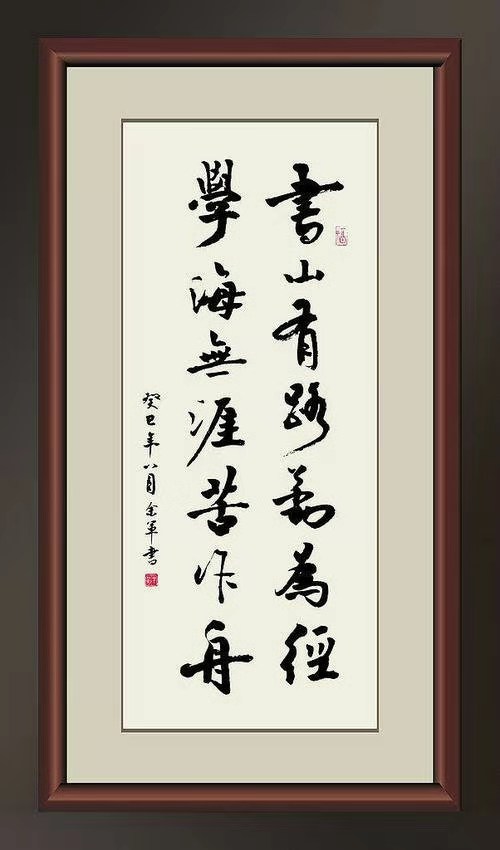 書山有路勤為徑
學海無涯苦作舟
癸巳年八月金軍書